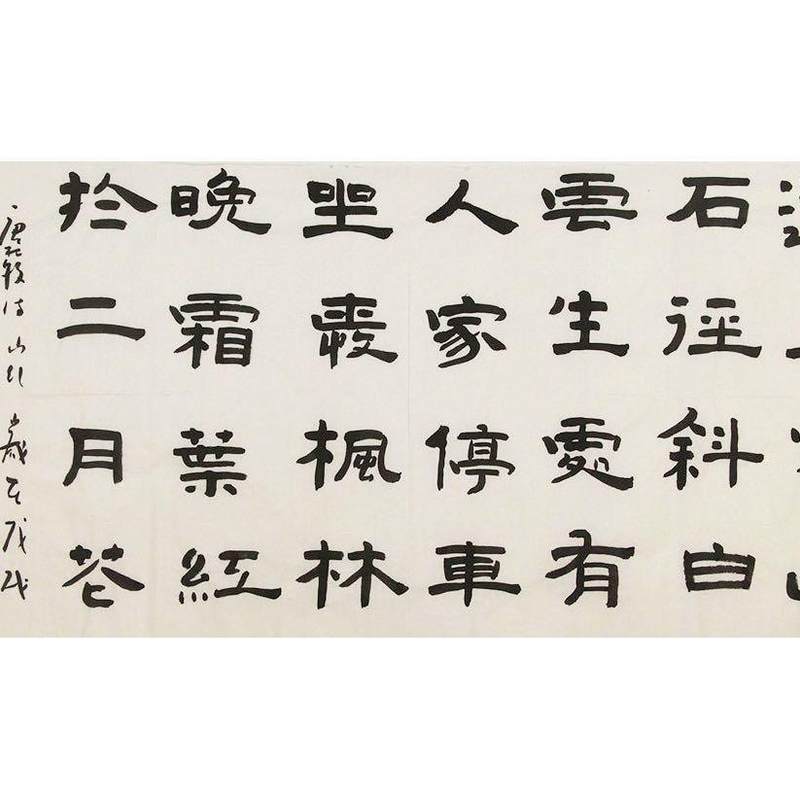 石徑斜白
雲生處有
人家停車
坐愛楓林
晚霜葉紅
於二月花
唐杜牧诗山行歲在戊戌